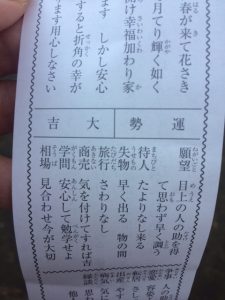 春が来て花さき
月てり輝く如く
け幸福加わり家
ます しかし安心
すると折角の幸が
ます用心しなさい
運勢
大吉
願望 目上の人の助を得
て思わず早く調う
待人 たよりなし来る
失物 早く出る 物の間
旅行 さわりなし
商売 気を付けてすれば吉
学問 安心して勉学せよ
相場 見合わせ今が大切